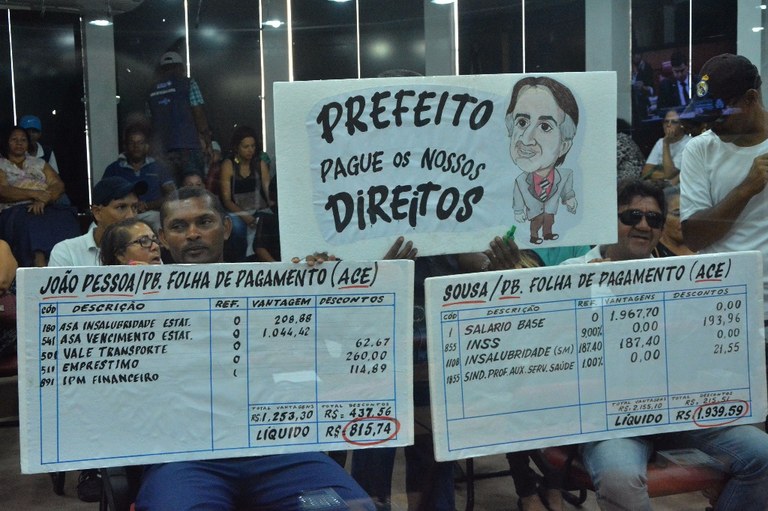 PREFEITO
PAGUE OS NOSSOS
DIREITOS
JOÃO PESSOA/PB. FOLHA DE PAGAMENTO (ACE)
CÓD DESCRIÇÃO REF. VANTAGEM DESCONTOS
180 ASA INSALUBRIDADE ESTAT. 0 208,88
541 ASA VENCIMENTO ESTAT. 0 1.044,42
501 VALE TRANSPORTE 0 62.67
511 EMPRESTIMO 0 260,00
891 IPM FINANCEIRO 114,89
TOTAL VANTAGENS TOTAL DESCONTOS
R$ 1.253,30 R$= 437,56
LÍQUIDO R$ 815,74
SOUSA/PB. FOLHA DE PAGAMENTO (ACE)
CÓD DESCRIÇÃO REF. VANTAGENS DESCONTOS
1 SALARIO BASE 0 1.967,70 0.00
855 INSS 9.00% 0.00 193,96
1108 INSALUBRIDADE (SM) 187.40 187.40 0.00
1855 SIND. PROF. AUX. SERV. SAÚDE 1.00% 0.00 21.55
TOTAL VANTAGENS TOTAL DESCONTOS
LÍQUIDO R$ 1.939.59